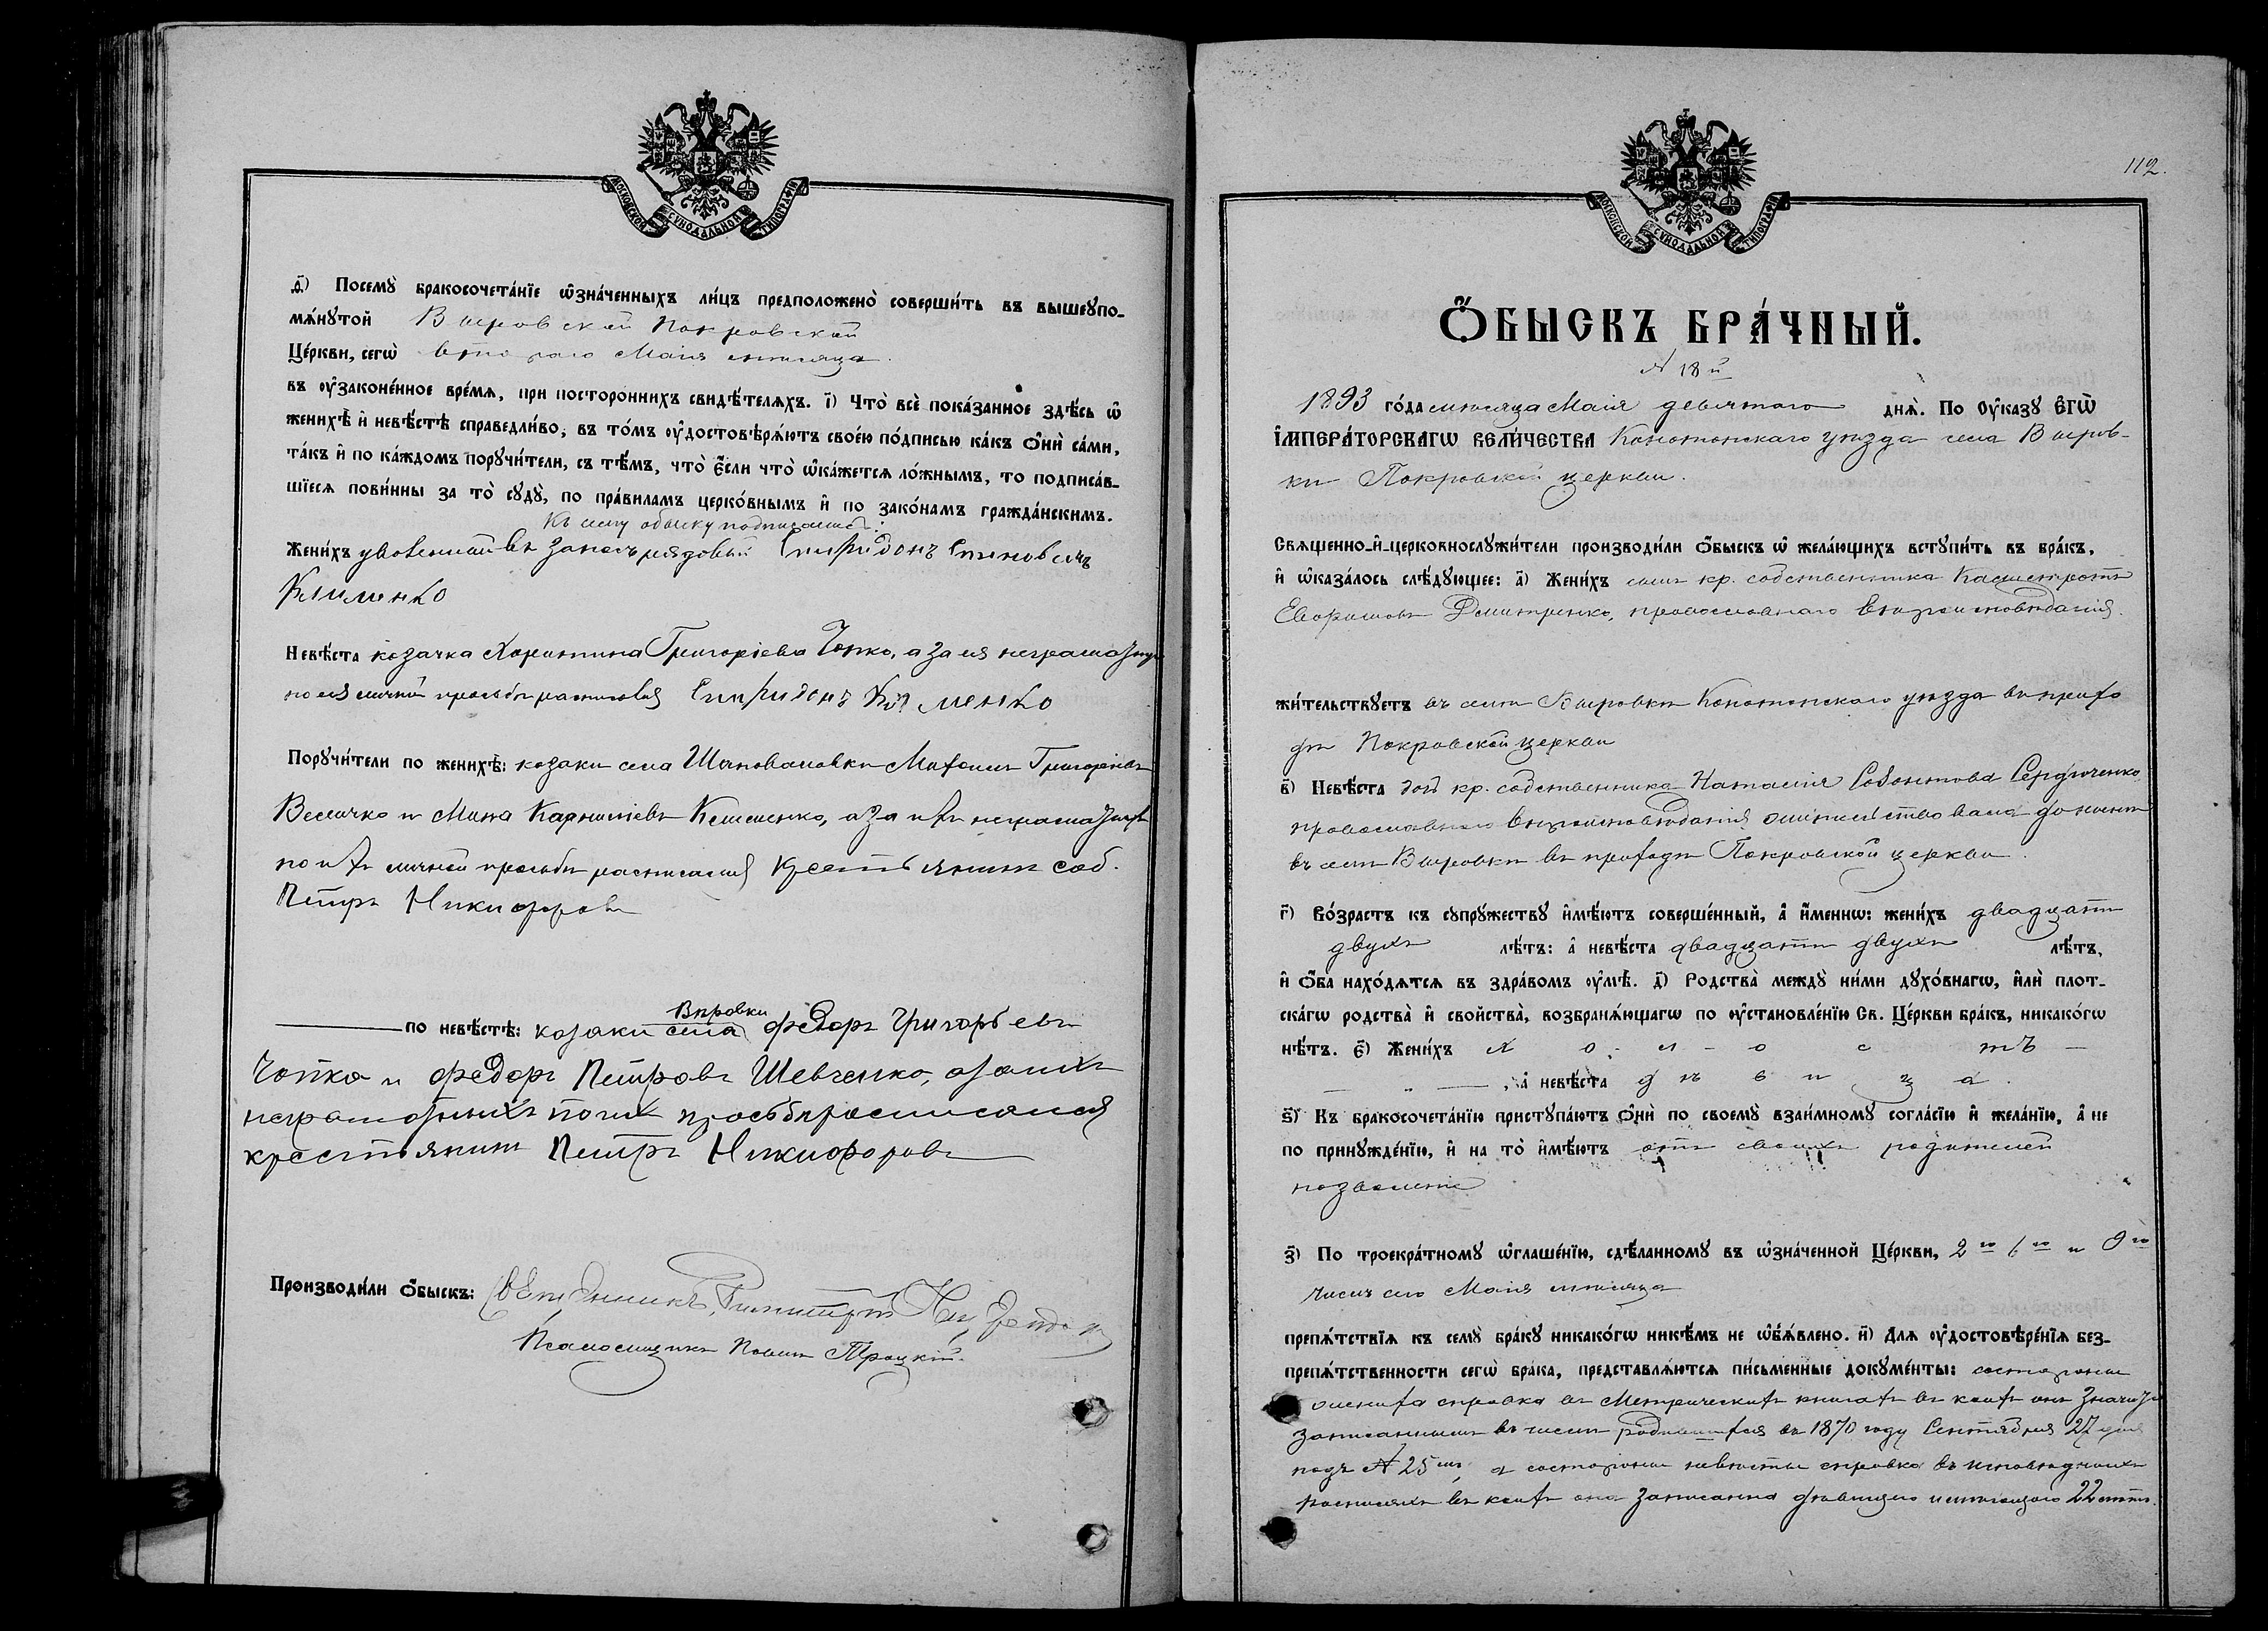 МОСКОВСКОЙ СѴНОДАЛЬНОЙ ТИПОГРАФІИ
д҃) Посемꙋ̀ бракосочета́нїе ѡ҆зна́ченныхъ ли́цъ предположено̀ соверши́ть въ вышеꙋпо-
мѧ́нꙋтой Вировской Покровской
Це́ркви, сегѡ̀ второго Маія мѣсяца.
въ ᲂу҆законе́нное вре́мѧ, при постороннихъ свидѣ́телѧхъ. і҃) Что̀ всѐ пока́занное здѣ́сь ѡ҆
женихѣ̀ и҆ невѣ́стѣ справедли́во, въ то́мъ ᲂу҆достовѣрѧ́ютъ свое́ю по́дписью ка́къ ѻ҆нѝ са́ми,
та́къ и҆ по ка́ждомъ порꙋчи́тели, съ тѣ́мъ, что̀ є҆́сли что̀ ѡ҆ка́жетсѧ ло́жнымъ, то подписа́в-
шїесѧ пови́нны за то̀ сꙋдꙋ̀, по пра́виламъ церко́внымъ и҆ по зако́намъ гражда́нскимъ.
Къ сему обыску подписались:
Жени́хъ уволенный въ запасъ рядовый Спиридонъ
Клименко
Невѣ́ста козачка Харитина Григоріева Чопко, а за ея неграмотную
по ея личной просьбѣ росписался Спиридонъ Клименко
Порꙋчи́тели по женихѣ̀: козаки села Шаповаловки Григоріевъ
Величко и Мина а за ихъ неграмотныхъ
по ихъ личной просьбѣ росписался крестьянинъ соб.
Петръ Никифоровъ
Вировки
по невѣ́стѣ: козаки села Федоръ Григорьевъ
Чопко и Федоръ Петровъ Шевченко, а за ихъ
неграмотныхъ по ихъ просьбѣ росписался
крестьянинъ Петръ Никифоровъ
Производи́ли ѻ҆́быскъ: Священникъ
Псаломщикъ Троцкій.
112.
МОСКОВСКОЙ СѴНОДАЛЬНОЙ ТИПОГРАФІИ
Ѻ҆́БЫСКЪ БРА́ЧНЫЙ.
№ 18й
1893 го́да мѣсяца Маія девятого днѧ̀. По ᲂу҆казꙋ Є҆ГѠ̀
І҆МПЕРА́ТОРСКАГѠ ВЕЛИ́ЧЕСТВА Конотопскаго уѣзда села Виров-
ки Покровской церкви.
Свѧщенно-и҆-церковнослꙋжи́тели производи́ли ѻ҆́быскъ ѡ҆ жела́ющихъ встꙋпи́ть въ бра́къ,
и҆ ѡ҆каза́лось слѣ́дꙋющее: а҃) Жени́хъ сынъ кр. собственника
Дмитренко, православнаго вѣроисповѣданія.
жи́тельствꙋетъ въ селѣ Вировки Конотопскаго уѣзда въ прихо
дѣ Покровской церкви
в҃) Невѣ́ста дочь кр. собственника Наталія Сердюченко
православнаго вѣроисповѣданія жительствовала до нынѣ
въ селѣ Вировки въ приходѣ Покровской церкви.
г҃) Во́зрастъ къ сꙋпрꙋ́жествꙋ и҆мѣ́ютъ соверше́нный, а҆ и҆́меннѡ: жени́хъ двадцати
двухъ лѣ́тъ: а҆ невѣ́ста двадцати двухъ лѣ́тъ,
и҆ ѻ҆́ба нахо́дѧтсѧ въ здра́вомъ ᲂу҆мѣ̀. д҃) Родства̀ междꙋ̀ ни́ми дꙋхо́внагѡ, и҆лѝ плот-
ска́гѡ родства̀ и҆ сво́йства̀, возбранѧ́ющагѡ по ᲂу҆становле́нїю Св. Це́ркви бра́къ, никако́гѡ
нѣ́тъ. є҃) Жени́хъ х о л о с тъ
, а҆ невѣ́ста д ѣ в и ц а.
ѕ҃) Къ бракосочета́нїю пристꙋпа́ютъ ѻ҆нѝ по своемꙋ̀ взаи́мномꙋ согла́сїю и҆ жела́нїю, а҆ не
по принꙋжде́нїю, и҆ на то̀ и҆мѣ́ютъ отъ своихъ родителей
позволеніе
з҃) По троекра́тномꙋ ѡ҆глаше́нїю, сдѣ́ланномꙋ въ ѡ҆зна́ченной Це́ркви, 2го 6го и 9го
числъ сего Маія мѣсяца
препѧ́тствїѧ къ семꙋ̀ бра́кꙋ никако́гѡ никѣ́мъ не ѡ҆б̾ѧ́влено. и҃) Длѧ ᲂу҆достовѣре́нїѧ без-
препѧ́тственности сегѡ̀ бра́ка, представлѧ́ютсѧ пи́сьменные докꙋме́нты: со стороны
жениха справка въ Метрическихъ книгахъ въ коихъ онъ значится
записаннымъ въ числѣ родившихся въ 1870 году Сентября 27 дня
подъ № 25мъ, а со стороны невѣсты справка въ исповѣдныхъ
росписяхъ въ коихъ она записанна дѣвицею имѣющею 22 лѣтъ.